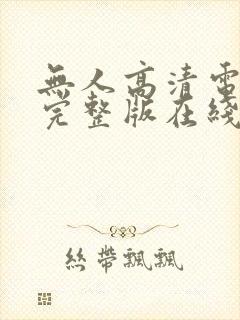 無人高清電
完整版在綫
絲帶飄飄